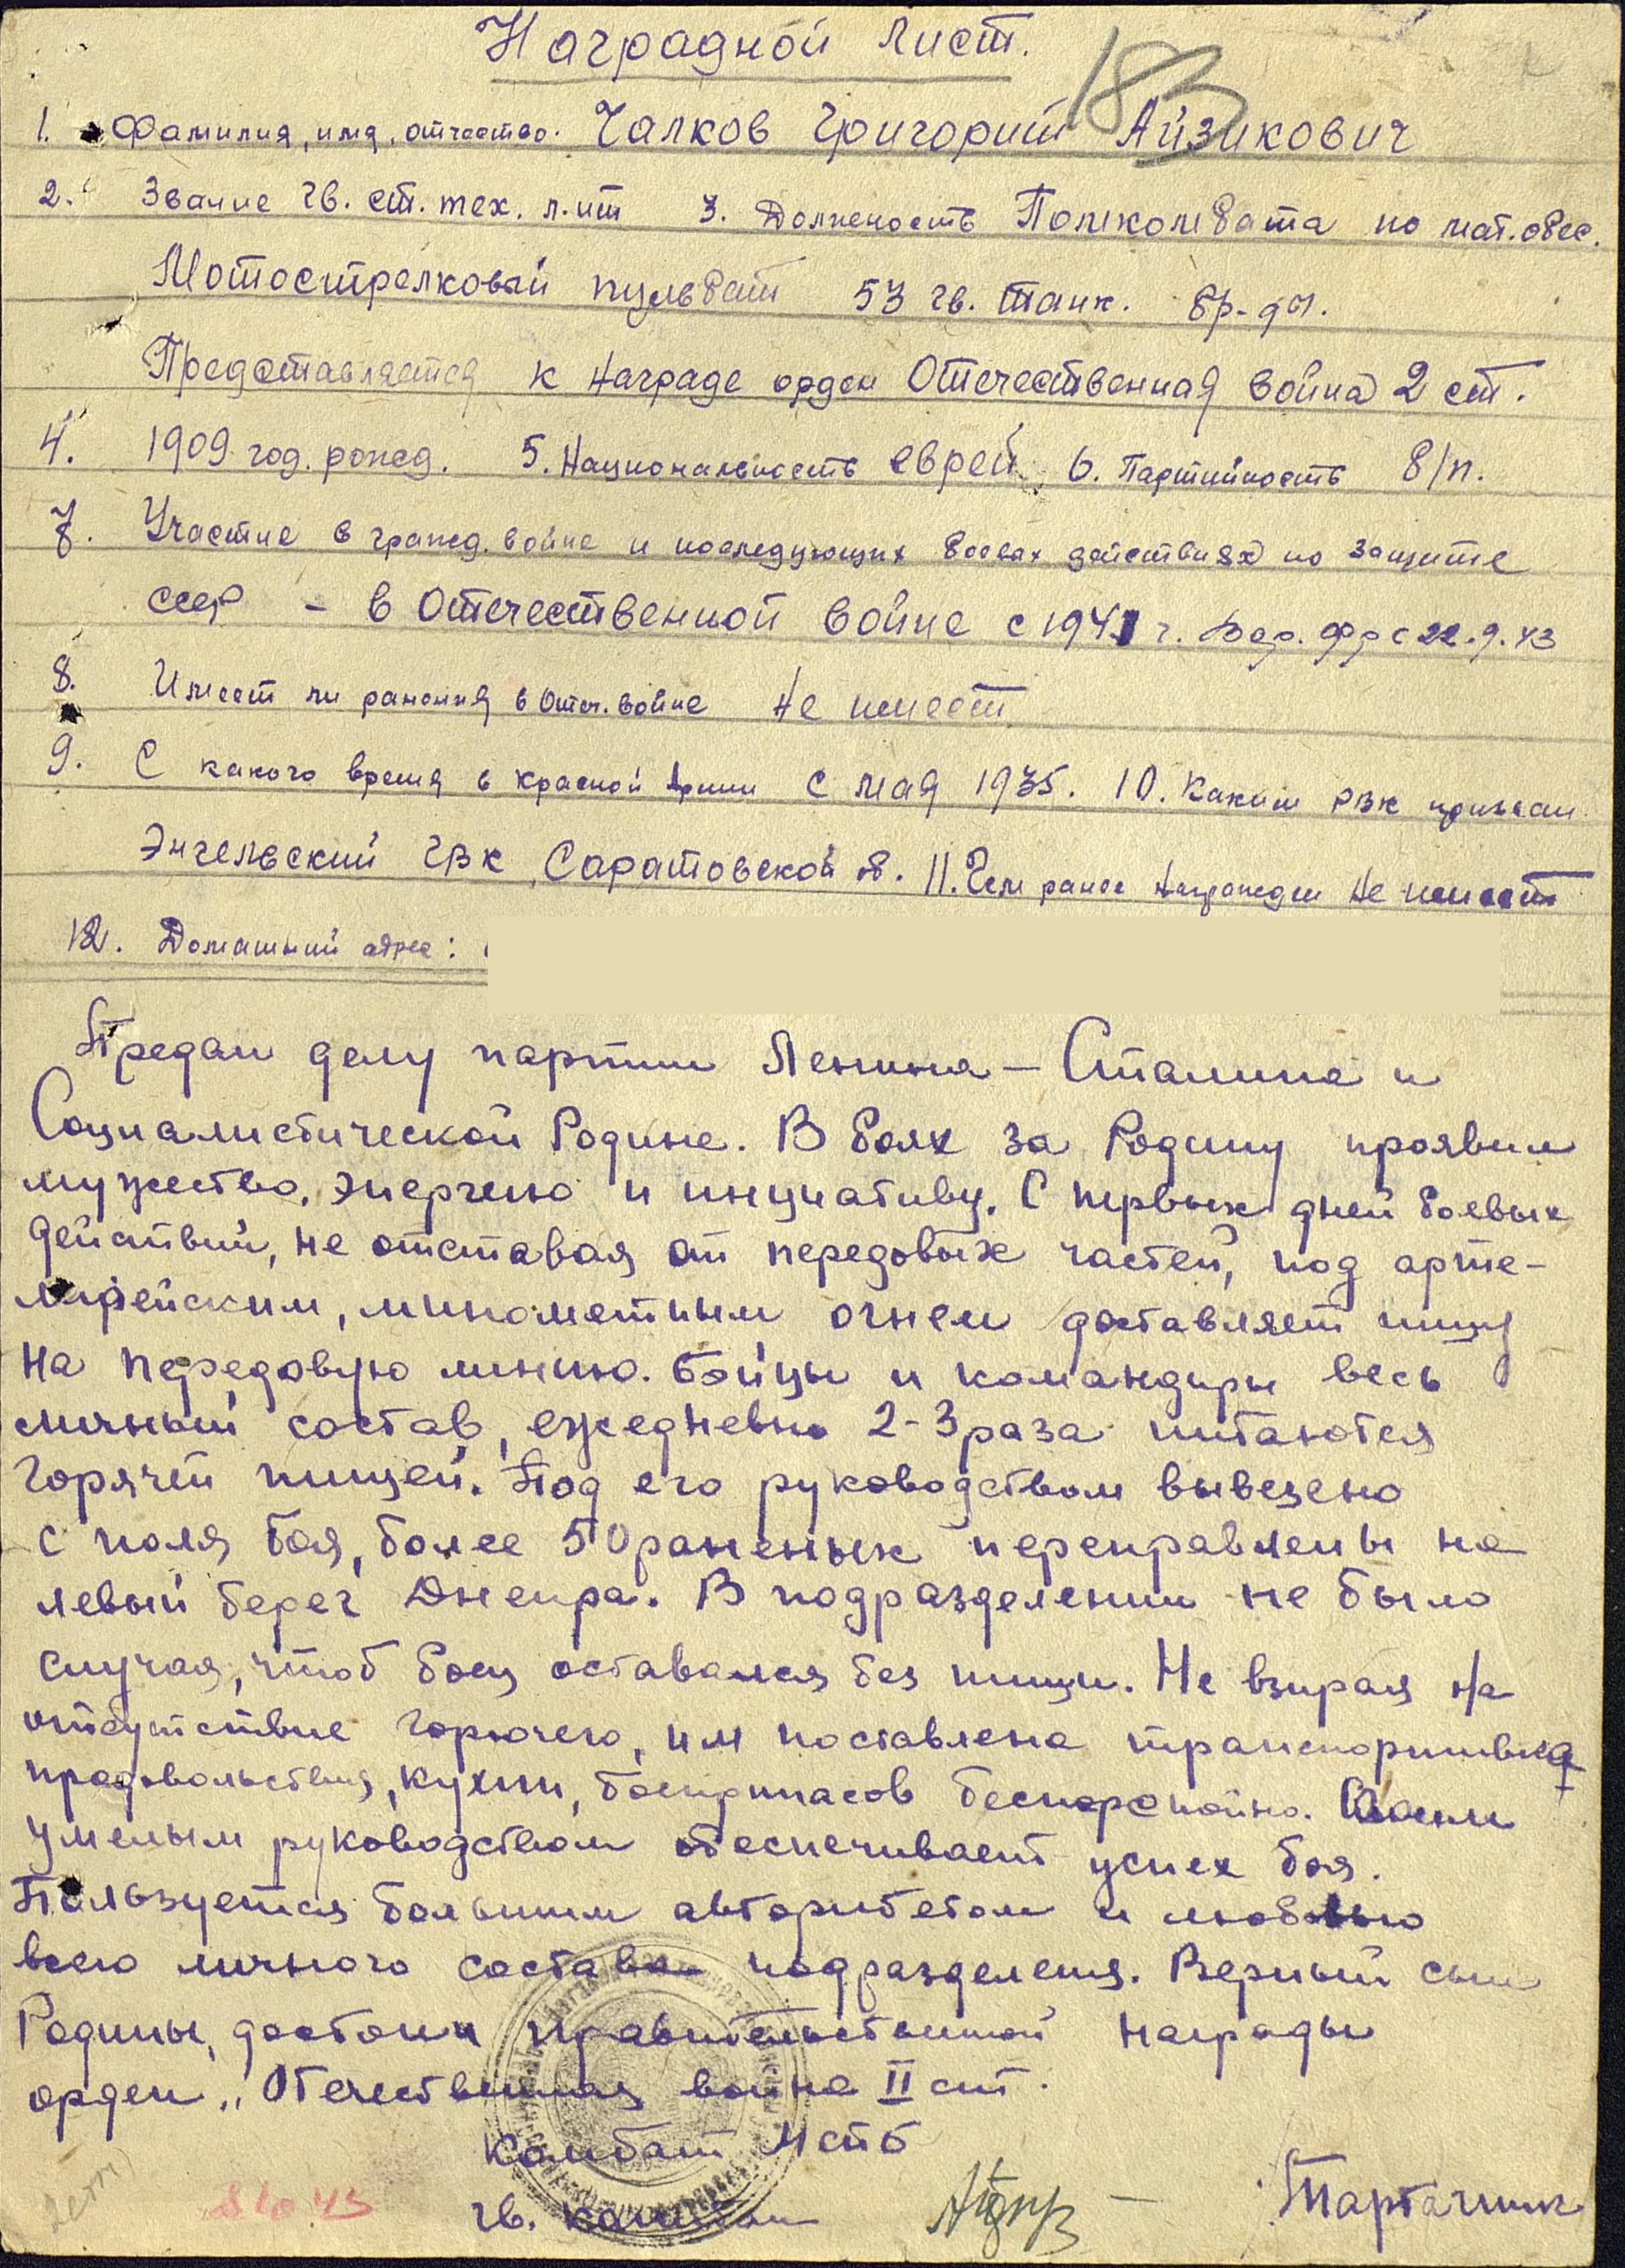 Наградной лист.
183
1. Фамилия, имя, отчество. Чалков Григорий Айзикович
2. Звание гв. ст. тех. л-ит 3. Должность Помкомбата по мат. обес.
Мотострелковый пульбат 53 гв. танк. бр-ды.
Предоставляется к награде орден Отечественная война 2 ст.
4. 1909 год. рожд. 5. Национальность еврей 6. Партийность б/п.
7. Участие в гражд. войне и последующих боевых действиях по защите
СССР – в Отечественной войне с 1941 г. Вор. фр с 22.9.43
8. Имеет ли ранения в Отеч. войне Не имеет
9. С какого время в красной Армии с мая 1935. 10. Каким РВК призван
Энгельский ГВК Саратовской об. 11. Чем ранее награжден не имеет
12. Домашний адрес:
Предан делу партии Ленина – Сталина и
Социалистической Родине. В боях за Родину проявил
мужество, энергию и инициативу. С первых дней боевых
действий, не отставая от передовых частей, под арти-
лерейским, минометным огнем доставляет пищу
на передовую линию. Бойцы и командиры весь
личный состав, ежедневно 2-3 раза питаются
горячей пищей. Под его руководством вывезено
с поля боя, более 50 раненных переправлены на
левый берег Днепра. В подразделении не было
случая, чтоб боец оставался без пищи. Не взирая на
отсутствие горючего, им поставлена транспортивка
продовольствия, кухни, боеприпасов бесперебойно. Своим
умелым руководством обеспечивает успех боя.
Пользуется большим авторитетом и любовью
всего личного состава подразделения. Верный сын
Родины, достоин правительственной награды
орден „Отечественная война II ст.
Комбат МСПБ
гв. капитан Тартачник
8 10 43